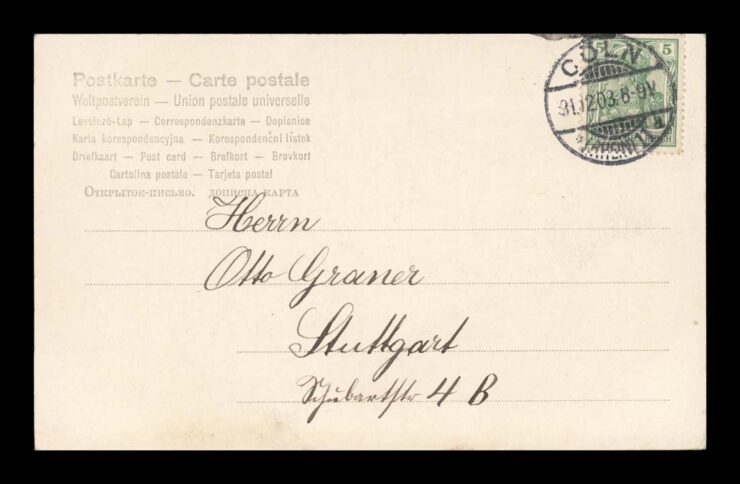 Postkarte — Carte postale
Weltpostverein — Union postale universelle
Levelező-Lap — Correspondenzkarte — Dopisnice
Karta korespondencyjna — Korespondenční lístek
Briefkaart — Post card — Brefkort — Brevkort
Cartolina postale — Tarjeta postal
Открытое-письмо. дописна карта
5 5
CÖLN
31.12.03.8-9V.
Herrn
Otto Graner
Stuttgart
Schubartstr 4 B